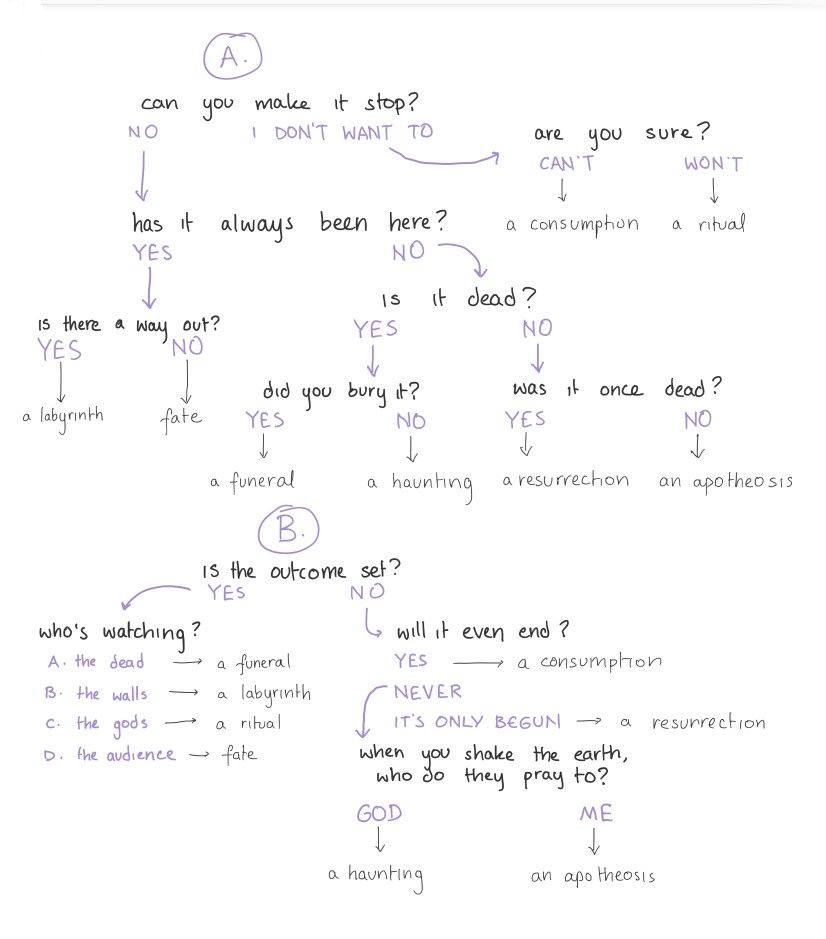 A.
can you make it stop?
NO I DON'T WANT TO
are you sure?
CAN'T WON'T
a consumption a ritual
has it always been here?
YES NO
is it dead?
YES NO
is there a way out?
YES NO
a labyrinth fate
did you bury it?
YES NO
a funeral a haunting
was it once dead?
YES NO
a resurrection an apotheosis
B.
is the outcome set?
YES NO
who's watching?
A. the dead a funeral
B. the walls a labyrinth
C. the gods a ritual
D. the audience fate
will it even end?
YES a consumption
NEVER
IT'S ONLY BEGUN a resurrection
when you shake the earth,
who do they pray to?
GOD ME
a haunting an apotheosis